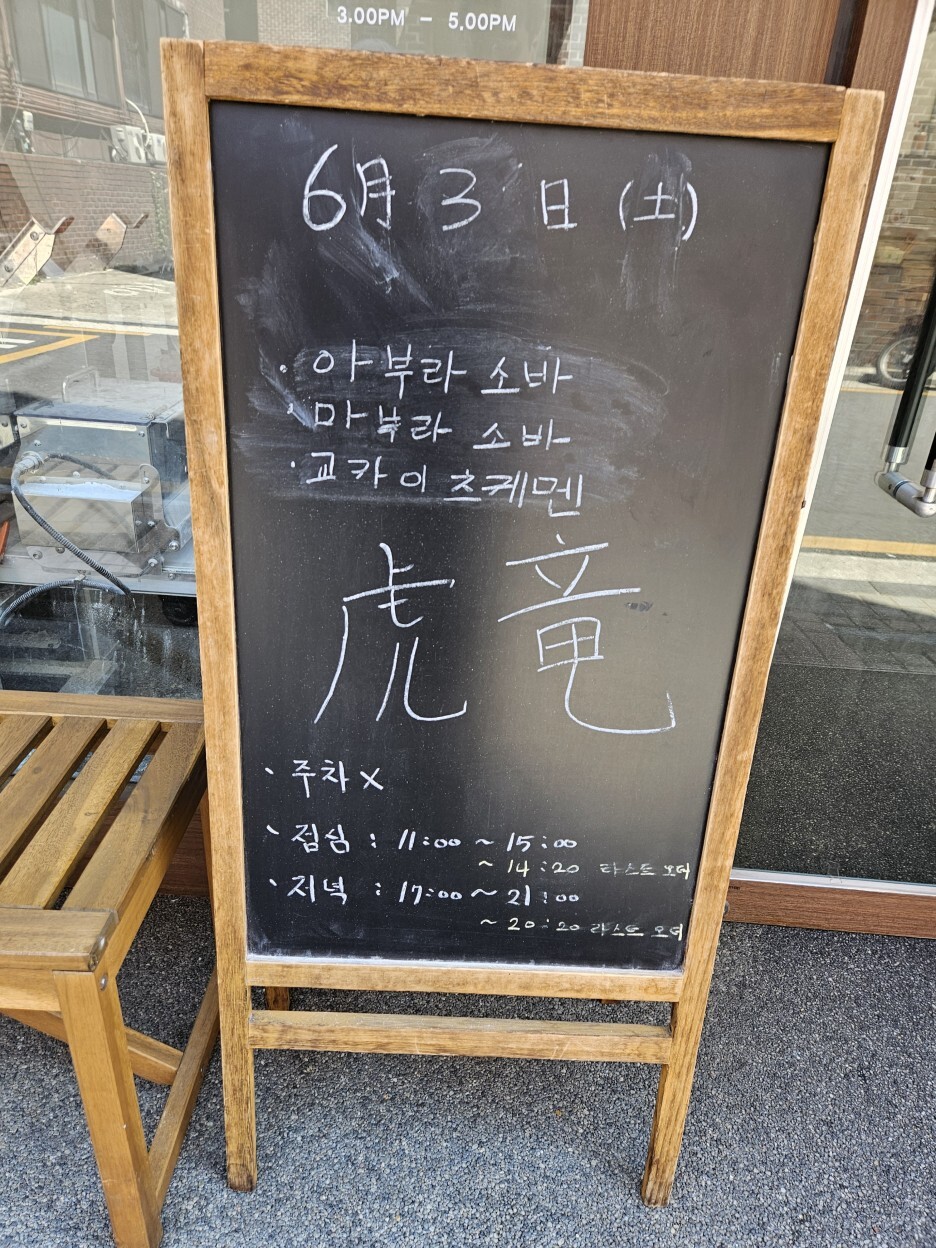 3.00PM - 5.00PM
6月 3 日 (土)
· 아부라 소바
· 마부라 소바
· 교카이 츠케멘
虎 竜
· 주차 X
· 점심 : 11:00 ~ 15:00
~ 14:20 라스트 오더
· 저녁 : 17:00 ~ 21:00
~ 20:20 라스트 오더